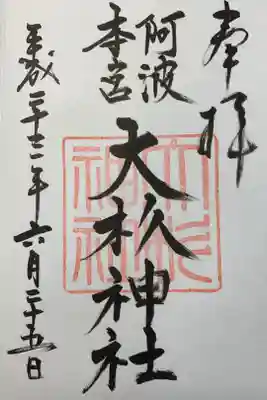 奉拝
阿波
本宮
大杦神社
大杉
神社
平成二十二年六月二十五日